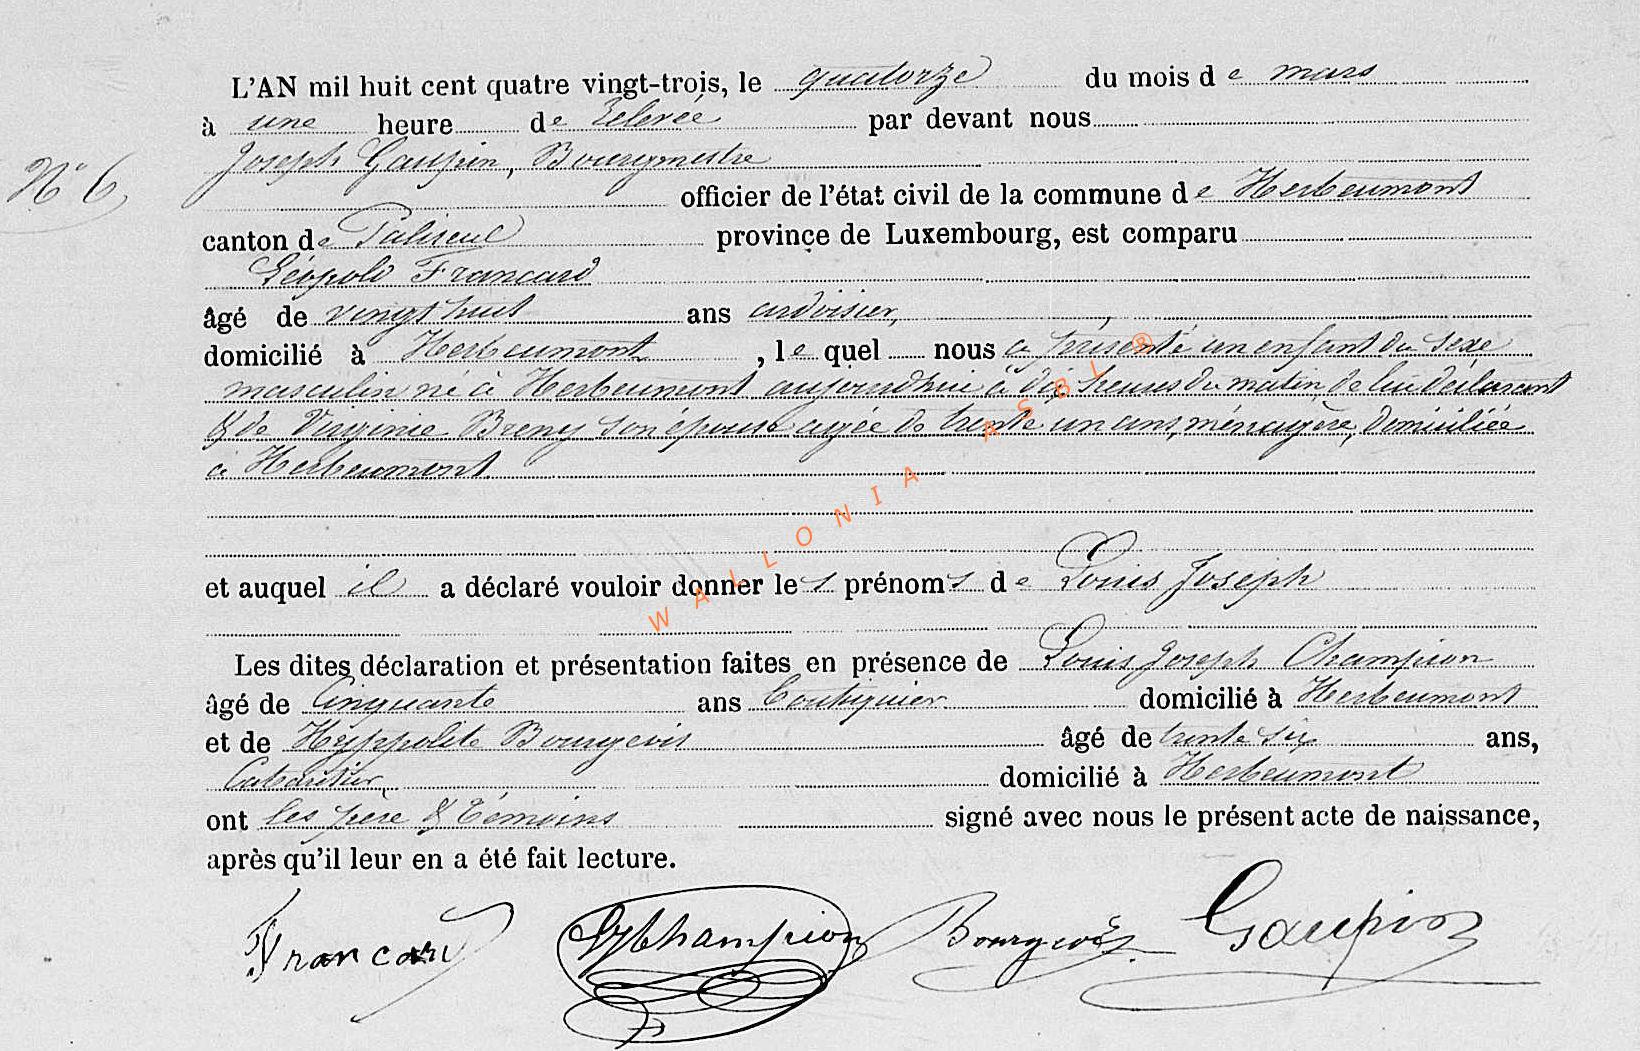 L'AN mil huit cent quatre vingt-trois, le quatorze du mois de mars
à une heure de relevée par devant nous
Joseph Gaupin, Bourgmestre
N° 6 officier de l'état civil de la commune de Herbeumont
canton de Paliseul province de Luxembourg, est comparu
Léopold Francard
âgé de vingt huit ans ardoisier,
domicilié à Herbeumont, le quel nous a présenté un enfant du sexe
masculin né à Herbeumont aujourdhui à dix heures du matin, de lui déclarant
& de Virginie Breny son épouse agée de trente un ans, ménagère, domiciliée
à Herbeumont
et auquel il a déclaré vouloir donner les prénoms de Louis Joseph
Les dites déclaration et présentation faites en présence de Louis Joseph Champion
âgé de Cinquante ans Boutiquier domicilié à Herbeumont
et de Hyppolite Bourgeois âgé de trente six ans,
Cabaretier, domicilié à Herbeumont
ont les père & témoins signé avec nous le présent acte de naissance,
après qu'il leur en a été fait lecture.
Francard LJChampion Bourgeois Gaupin
WALLONIA ASBL ®